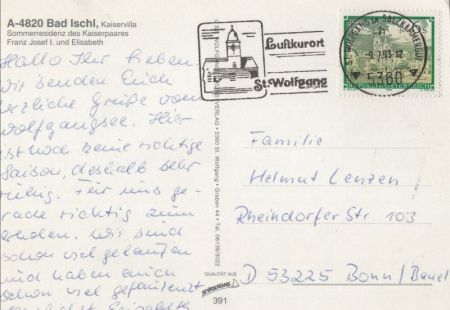 A-4820 Bad Ischl, Kaiservilla
Sommerresidenz des Kaiserpaares
Franz Josef I. und Elisabeth
Hallo Ihr Lieben,
wir senden Euch
herzliche Grüße vom
Wolfgangsee. Hier
ist noch keine richtige
Saison, deshalb sehr
ruhig. Für uns ge-
rade richtig zum
Wir sind
schon viel gelaufen
und haben auch
schon viel gefaulenzt
Luftkurort
St. Wolfgang
ST. WOLFGANG IM SALZKAMMERGUT
5360
VERLAG • 5360 St. Wolfgang
QUALITÄT AUS
ST. WOLFGANG
391
Familie
Helmut Lenzen
Rheindorfer Str. 103
D 53225 Bonn/Beuel